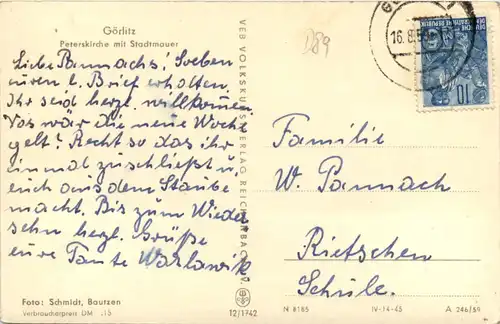 Görlitz
Peterskirche mit Stadtmauer
Liebe Pannachs! Soeben
euren l. Brief erhalten.
Ihr seid herzl. willkommen
Vos war die neue Woche
gelt? Recht so das ihr
einmal zuschließt u.
euch aus dem Staube
macht. Bis zum Wieder
sehn herzl. Grüße
eure Tante
Foto: Schmidt, Bautzen
Verbraucherpreis DM -.15
VEB VOLKSKUNSTVERLAG REICHENBACH i. V.
12/1742
D89
16.8.5
DEUTSCHE DEMOKRATISCHE REPUBLIK
10
Familie
W. Pannach
Rietschen
Schule.
N 8185
IV-14-45
A 246/59